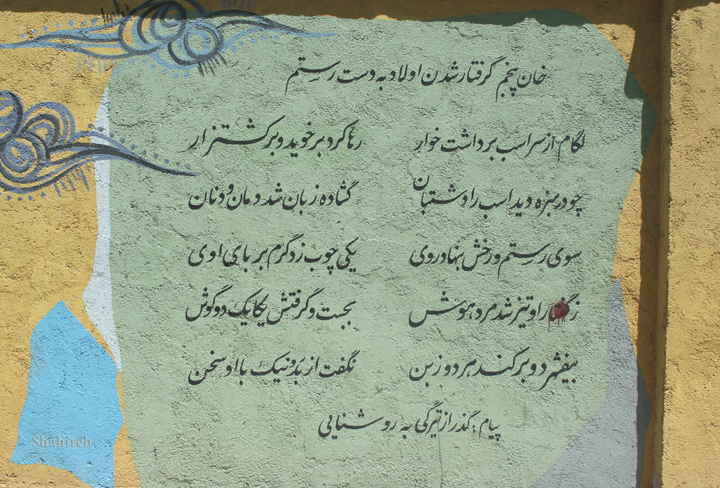 خان پنجم گرفتار شدن اولاد به دست رستم
لگام از سر اسب برداشت خوار رها کرد بر خوید و بر کشتزار
چو در سبزه دید اسب را دشتبان گشاده زبان شد دمان و دنان
سوی رستم و رخش بنهاد روی یکی چوب زد گرم بر پای اوی
ز گفتار او تیز شد مرد هوش بجست و گرفتش یکایک دو گوش
بیفشرد و برکند هر دو ز بن نگفت از بد و نیک با او سخن
پیام: گذر از تیرگی به روشنایی
Shahireh